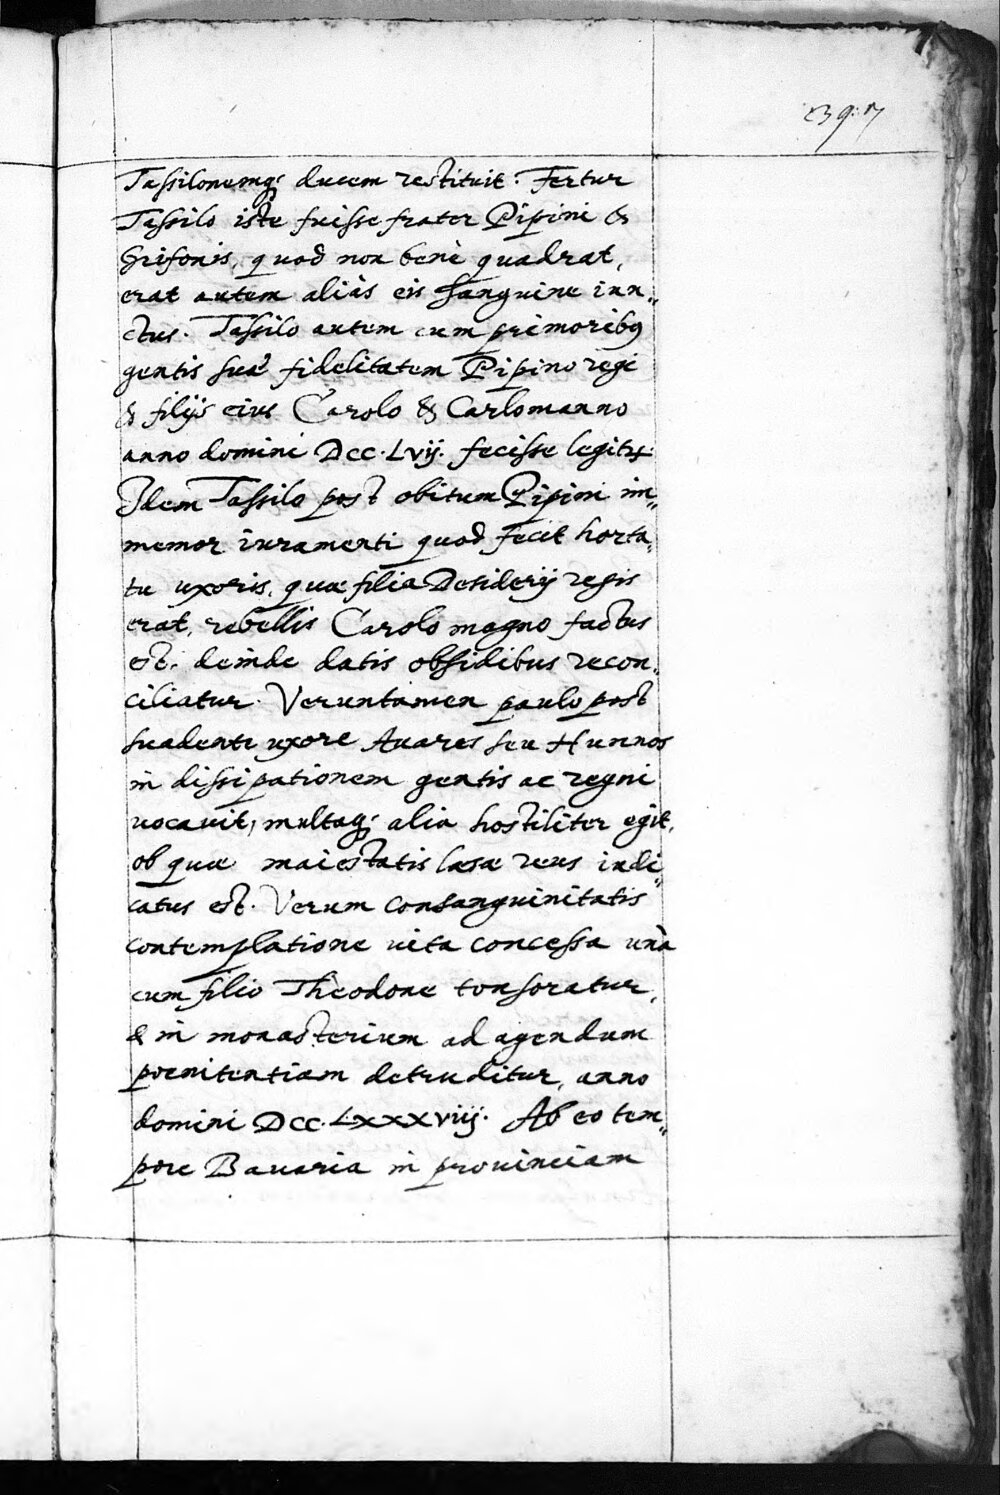 397
Tassilonemq; ducem restituit. Fertur
Tassilo iste fuisse frater Pipini &
Grifonis, quod non benè quadrat,
erat autem aliàs eis sanguine iun„
ctus. Tassilo autem cum primoribus
gentis suæ fidelitatem Pipino regi
& filijs eius Carolo & Carlomanno
anno domini DCC.LVij. fecisse legitur.
Idem Tassilo post obitum Pipini im„
memor iuramenti quod fecit horta„
tu uxoris, quæ filia Desiderij regis
erat, rebellis Carolo magno factus
est. deinde datis obsidibus recon„
ciliatur. Veruntamen paulo post
suadente uxore Auares seu Hunnos
in dissipationem gentis ac regni
uocauit, multaq; alia hostiliter egit,
ob quæ maiestatis læsæ reus iudi„
catus est. Verum consanguinitatis
contemplatione uita concessa unà
cum filio Theodone tonsoratur,
& in monasterium ad agendum
poenitentiam detruditur, anno
domini DCC.LXXXViij. Ab eo tem„
pore Bauaria in prouinciam